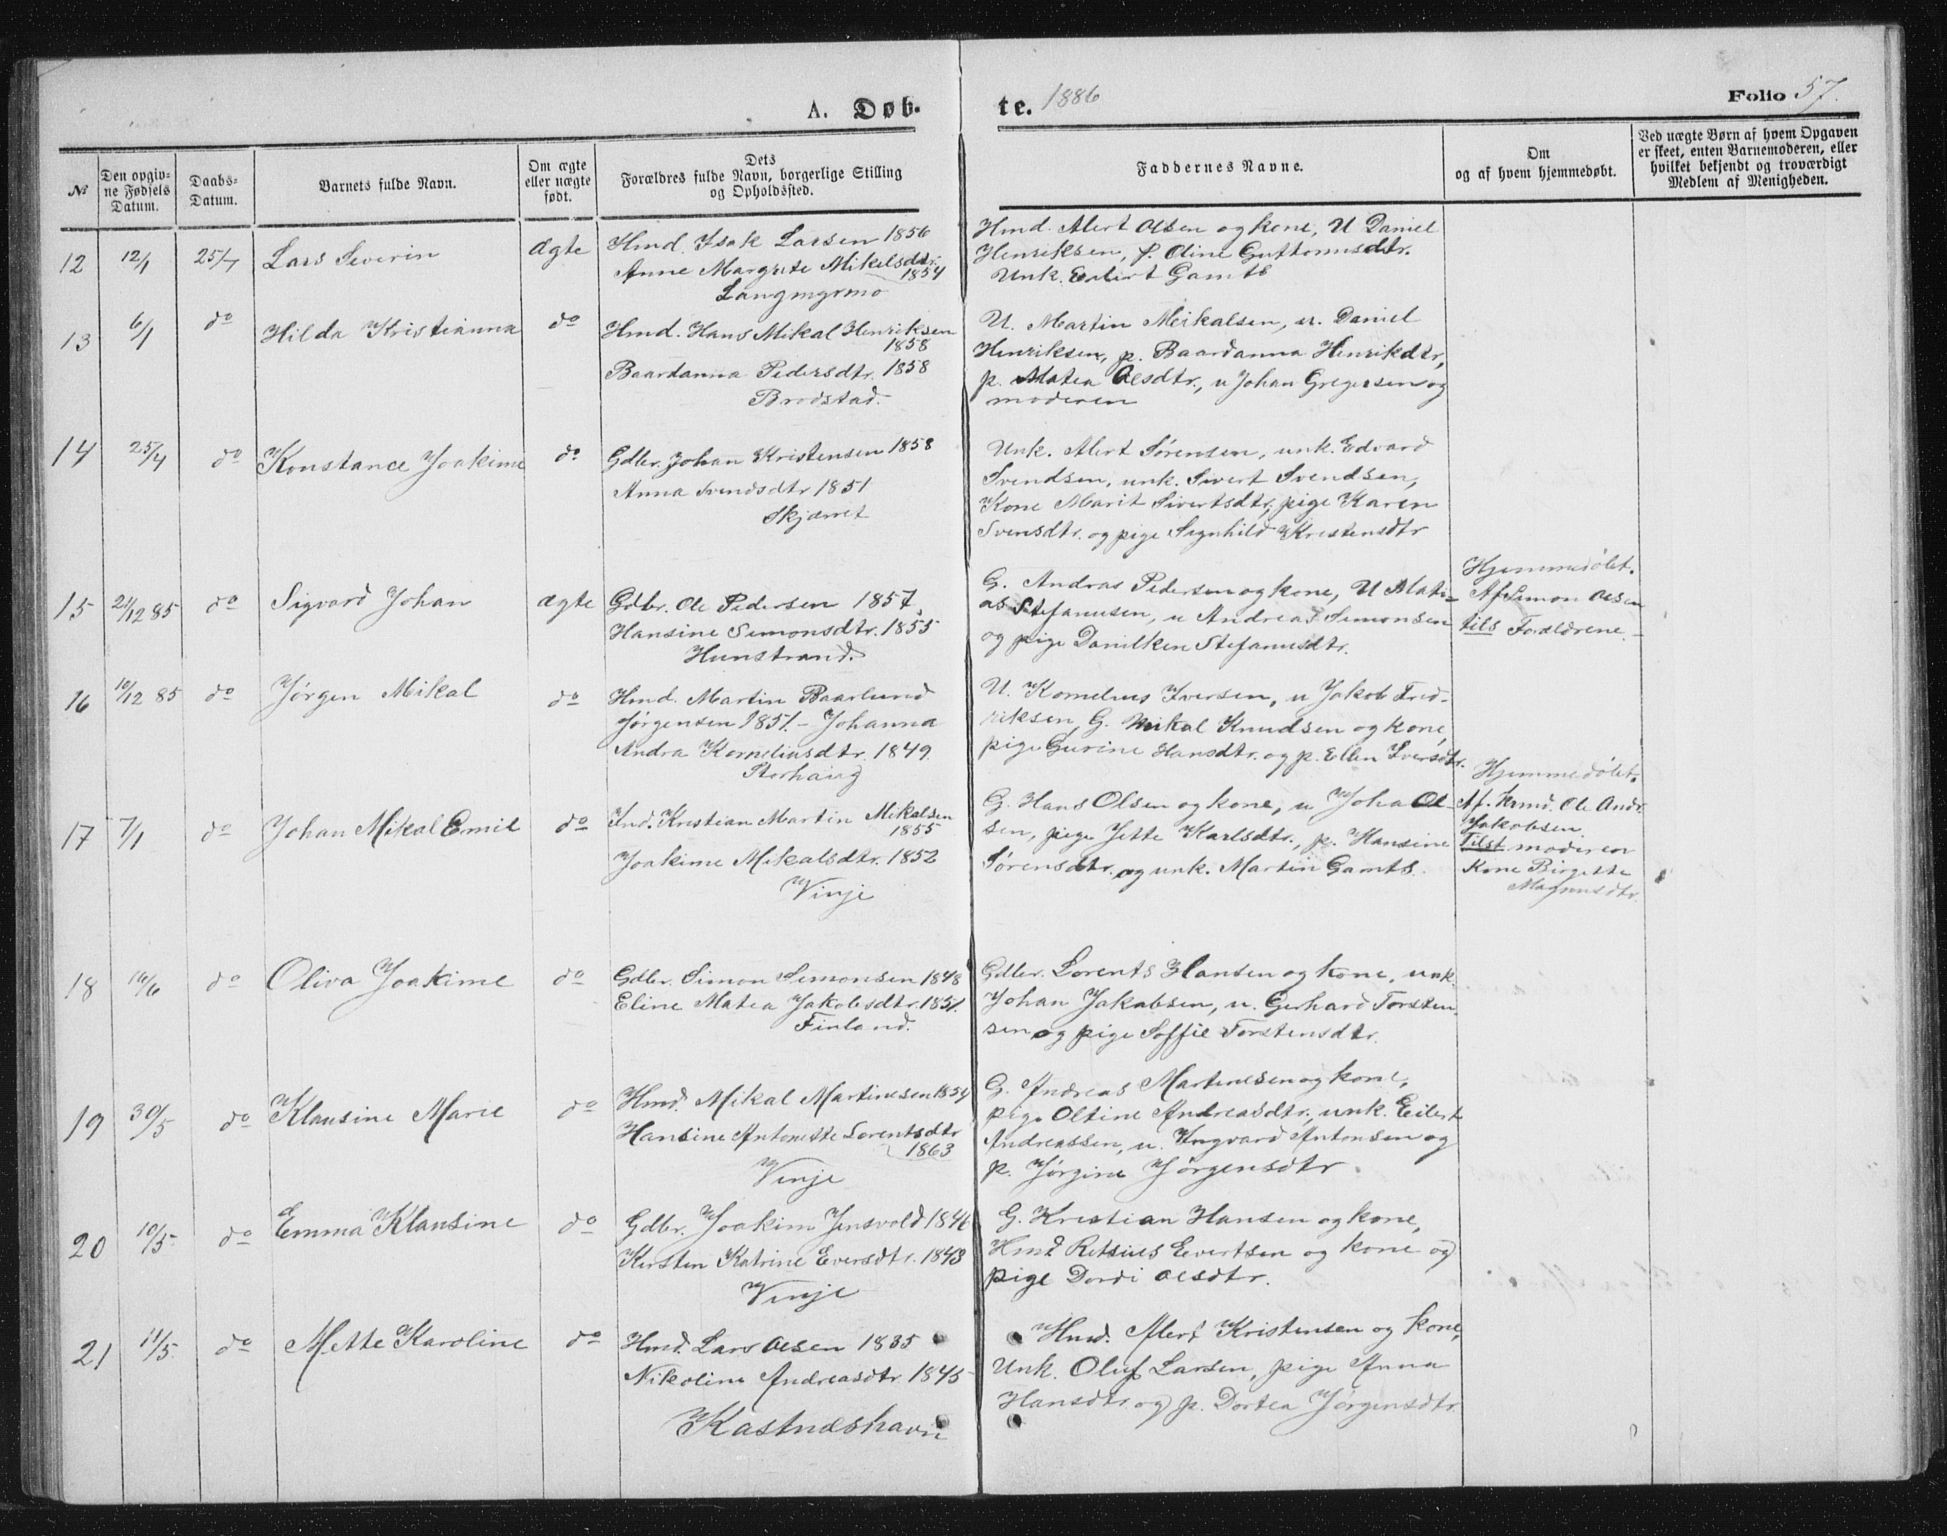 A. Døb- te. 1886 Folio 57.
№ | Den opgivne Fødsels Datum. | Daabs-Datum. | Barnets fulde Navn. | Om ægte eller uægte født. | Dets Forældres fulde Navn, borgerlige Stilling og Opholdssted. | Faddernes Navne. | Om og af hvem hjemmedøbt. | Ved uægte Børn af hvem Opgaven er skeet, enten Barnemoderen, eller hvilket bekjendt og troværdigt Medlem af Menigheden.
12 12/1 25/7 Lars Severin ægte
Hmd. Isak Larsen 1856
Anne Margrete Mikelsdtr.
1854
Langmyrmo
Hmd. Alert Olsen og kone, U Daniel
Henriksen, p. Oline Guttormsdtr.
Unk. Eilert Gamts
13 6/1 do Hilda Kristianna do
Hmd. Hans Mikal Henriksen
1858
Baardanna Pedersdtr. 1858
Brodstad.
U. Martin Meikalsen, u. Daniel
Henriksen, p. Baardanna Henrikdtr,
p. Matea Olsdtr., u Johan Gregersen og
moderen
14 25/4 do Konstance Joakime do
Gdbr. Johan Kristensen 1858
Anna Svendsdtr 1851
Skjærret
Unk. Alert Sørensen, unk. Edvard
Svendsen, unk. Sivert Svendsen,
Kone Marit Sivertsdtr, pige Karen
Svensdtr. og pige Signhild Kristensdtr
15 21/12 85 do Sigvard Johan ægte
Gdbr. Ole Pedersen 1857,
Hansine Simonsdtr. 1855
Hunstrand.
G. Andras Pedersen og kone, U Mati-
as Stefanusen, u Andreas Simonsen
og pige Danilken Stefanusdtr.
Hjemmedøbt.
Af Simon Olsen
tils Forældrene.
16 10/12 85 do Jørgen Mikal do
Hmd. Martin Baarlund
Jørgensen 1851. - Johanna
Andra Korneliusdtr. 1849.
Storhaug
U. Kornelius Iversen, u Jakob Fred-
riksen, G. Mikal Knudsen og kone,
pige Gurine Hansdtr. og p. Ellen Iversdtr.
17 7/1 do Johan Mikal Emil do
Ind. Kristian Martin Mikalsen
1855
Joakime Mikalsdtr. 1852
Vinje
G. Hans Olsen og kone, u Joha Ol-
sen, pige Jette Karlsdtr., p. Hansine
Sørensdtr. og unk. Martin Gamts.
Hjemmedøbt.
Af. Kmd. Ole Andr.
Jakobsen.
Tilst moderen
Kone Birgitte
Magnusdtr.
18 16/6 do Oliva Joakime do
Gdbr. Simon Simonsen 1848
Eline Matea Jakobsdtr. 1851.
Finland.
Gdbr. Lorents Hansen og kone, unk.
Johan Jakabsen, u. Gerhard Torsten
sen og pige Soffie Torstensdtr.
19 30/5 do Klausine Marie do
Hmd. Mikal Martinesen 1854
Hansine Antonette Lorentsdtr
1863
Vinje
G. Andreas Martinesen og kone,
pige Oltine Andreasdtr., unk. Eilert
Andreassen, u. Ingvard Antonsen og
p. Jørgine Jørgensdtr.
20 10/5 do Emma Klausine do
Gdbr. Joakim Jensvold 1846
Kersten Katrine Eversdtr. 1843
Vinje
G. Kristian Hansen og kone,
Hmd Retsius Evertsen og kone og
pige Dordi Olsdtr.
21 11/5 do Mette Karoline do
Hmd. Lars Olsen 1835
Nikoline Andreasdtr. 1845
Kastnæshavn
Hmd. Alert Kristensen og kone,
Unk. Oluf Larsen, pige Anna
Hansdtr og p. Dortea Jørgensdtr.